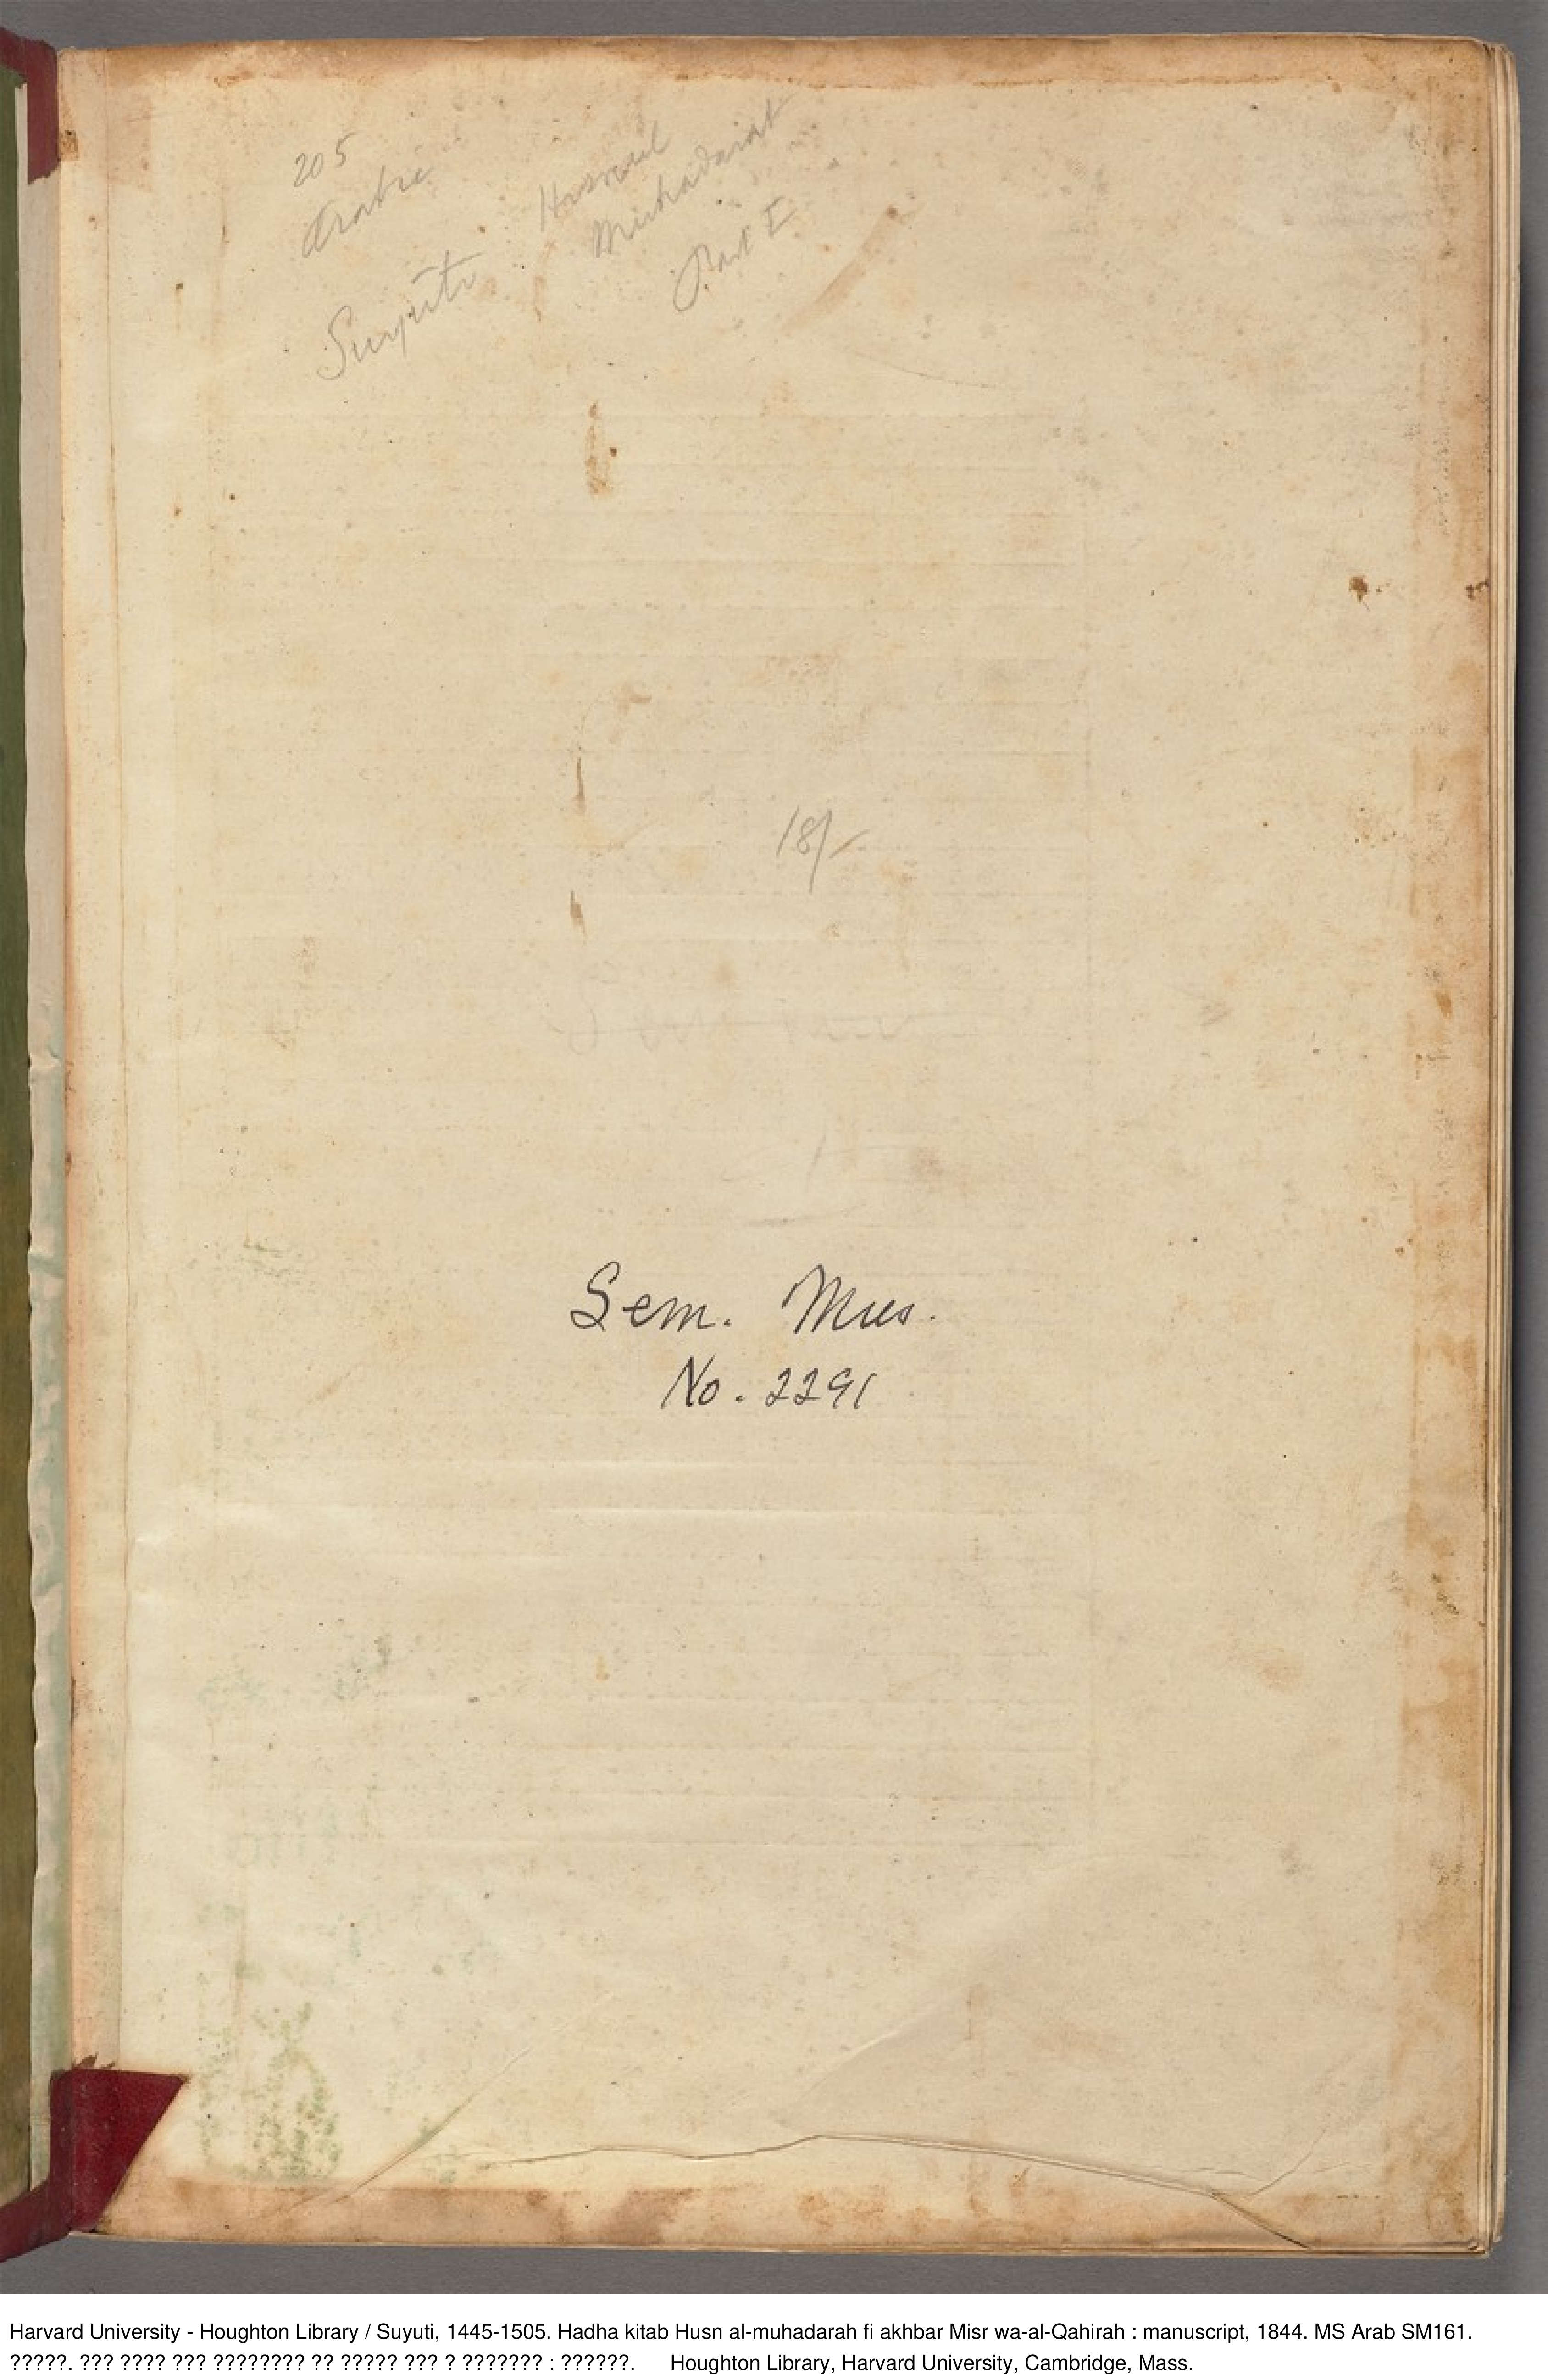 205
Arabic
Suyūti
Husnul
Muhadarat
Part I
18/-
Sem. Mus.
No. 2291
Harvard University - Houghton Library / Suyuti, 1445-1505. Hadha kitab Husn al-muhadarah fi akhbar Misr wa-al-Qahirah : manuscript, 1844. MS Arab SM161.
?????. ??? ???? ??? ???????? ?? ????? ??? ? ??????? : ??????. Houghton Library, Harvard University, Cambridge, Mass.